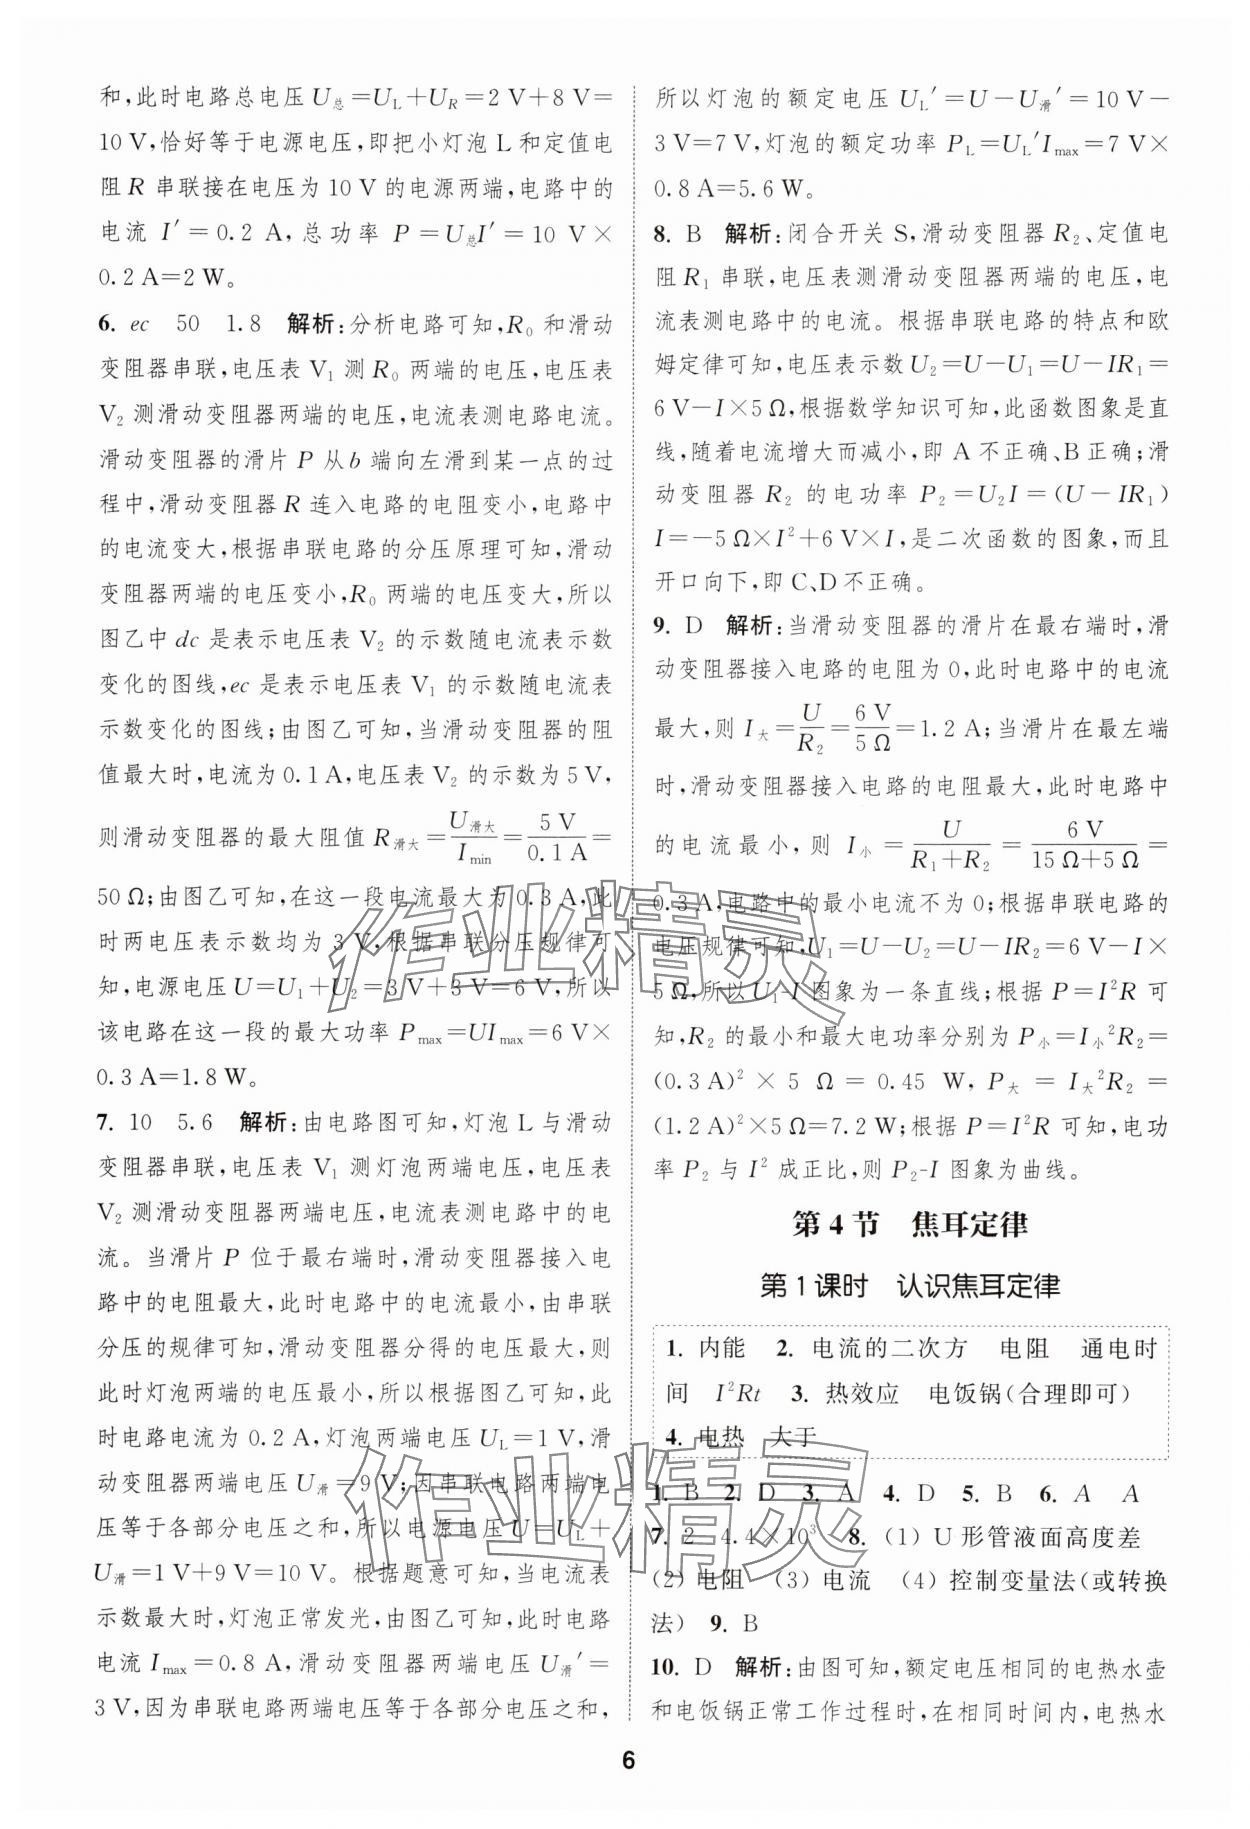 和,此时电路总电压U总=U_L+U_R=2 V+8 V=
10 V,恰好等于电源电压,即把小灯泡L和定值电
阻R串联接在电压为10 V的电源两端,电路中的
电流 I′=0.2 A,总功率 P=U总I′=10 V×
0.2 A=2 W。
6. ec 50 1.8 解析:分析电路可知,R₀和滑动
变阻器串联,电压表V₁测R₀两端的电压,电压表
V₂测滑动变阻器两端的电压,电流表测电路电流。
滑动变阻器的滑片P从b端向左滑到某一点的过
程中,滑动变阻器R连入电路的电阻变小,电路中
的电流变大,根据串联电路的分压原理可知,滑动
变阻器两端的电压变小,R₀两端的电压变大,所以
图乙中dc是表示电压表V₂的示数随电流表示数
变化的图线,ec是表示电压表V₁的示数随电流表
示数变化的图线;由图乙可知,当滑动变阻器的阻
值最大时,电流为0.1 A,电压表V₂的示数为5 V,
则滑动变阻器的最大阻值R滑大=U滑大/I_min=5 V/0.1 A=
50 Ω;由图乙可知,在这一段电流最大为0.3 A,此
时两电压表示数均为3 V,根据串联分压规律可
知,电源电压U=U₁+U₂=3 V+3 V=6 V,所以
该电路在这一段的最大功率P_max=UI_max=6 V×
0.3 A=1.8 W。
7. 10 5.6 解析:由电路图可知,灯泡L与滑动
变阻器串联,电压表V₁测灯泡两端电压,电压表
V₂测滑动变阻器两端电压,电流表测电路中的电
流。当滑片P位于最右端时,滑动变阻器接入电
路中的电阻最大,此时电路中的电流最小,由串联
分压的规律可知,滑动变阻器分得的电压最大,则
此时灯泡两端的电压最小,所以根据图乙可知,此
时电路电流为0.2 A,灯泡两端电压U_L=1 V,滑
动变阻器两端电压U滑=9 V;因串联电路两端电
压等于各部分电压之和,所以电源电压U=U_L+
U滑=1 V+9 V=10 V。根据题意可知,当电流表
示数最大时,灯泡正常发光,由图乙可知,此时电路
电流I_max=0.8 A,滑动变阻器两端电压U滑′=
3 V,因为串联电路两端电压等于各部分电压之和,
所以灯泡的额定电压U_L′=U-U滑′=10 V-
3 V=7 V,灯泡的额定功率P_L=U_L′I_max=7 V×
0.8 A=5.6 W。
8. B 解析:闭合开关S,滑动变阻器R₂、定值电
阻R₁串联,电压表测滑动变阻器两端的电压,电
流表测电路中的电流。根据串联电路的特点和欧
姆定律可知,电压表示数U₂=U-U₁=U-IR₁=
6 V-I×5 Ω,根据数学知识可知,此函数图象是直
线,随着电流增大而减小,即A不正确、B正确;滑
动变阻器R₂的电功率P₂=U₂I=(U-IR₁)
I=-5 Ω×I²+6 V×I,是二次函数的图象,而且
开口向下,即C、D不正确。
9. D 解析:当滑动变阻器的滑片在最右端时,滑
动变阻器接入电路的电阻为0,此时电路中的电流
最大,则I大=U/R₂=6 V/5 Ω=1.2 A;当滑片在最左端
时,滑动变阻器接入电路的电阻最大,此时电路中
的电流最小,则I小=U/(R₁+R₂)=6 V/(15 Ω+5 Ω)=
0.3 A,电路中的最小电流不为0;根据串联电路的
电压规律可知,U₁=U-U₂=U-IR₂=6 V-I×
5 Ω,所以U₁-I图象为一条直线;根据P=I²R可
知,R₂的最小和最大电功率分别为P小=I小²R₂=
(0.3 A)²×5 Ω=0.45 W,P大=I大²R₂=
(1.2 A)²×5 Ω=7.2 W;根据P=I²R可知,电功
率P₂与I²成正比,则P₂-I图象为曲线。
第4节 焦耳定律
第1课时 认识焦耳定律
1. 内能 2. 电流的二次方 电阻 通电时
间 I²Rt 3. 热效应 电饭锅(合理即可)
4. 电热 大于
1. B 2. D 3. A 4. D 5. B 6. A A
7. 2 4.4×10³ 8. (1) U形管液面高度差
(2) 电阻 (3) 电流 (4) 控制变量法(或转换
法) 9. B
10. D 解析:由图可知,额定电压相同的电热水壶
和电饭锅正常工作过程时,在相同时间内,电热水
6
作业精灵
作业精灵